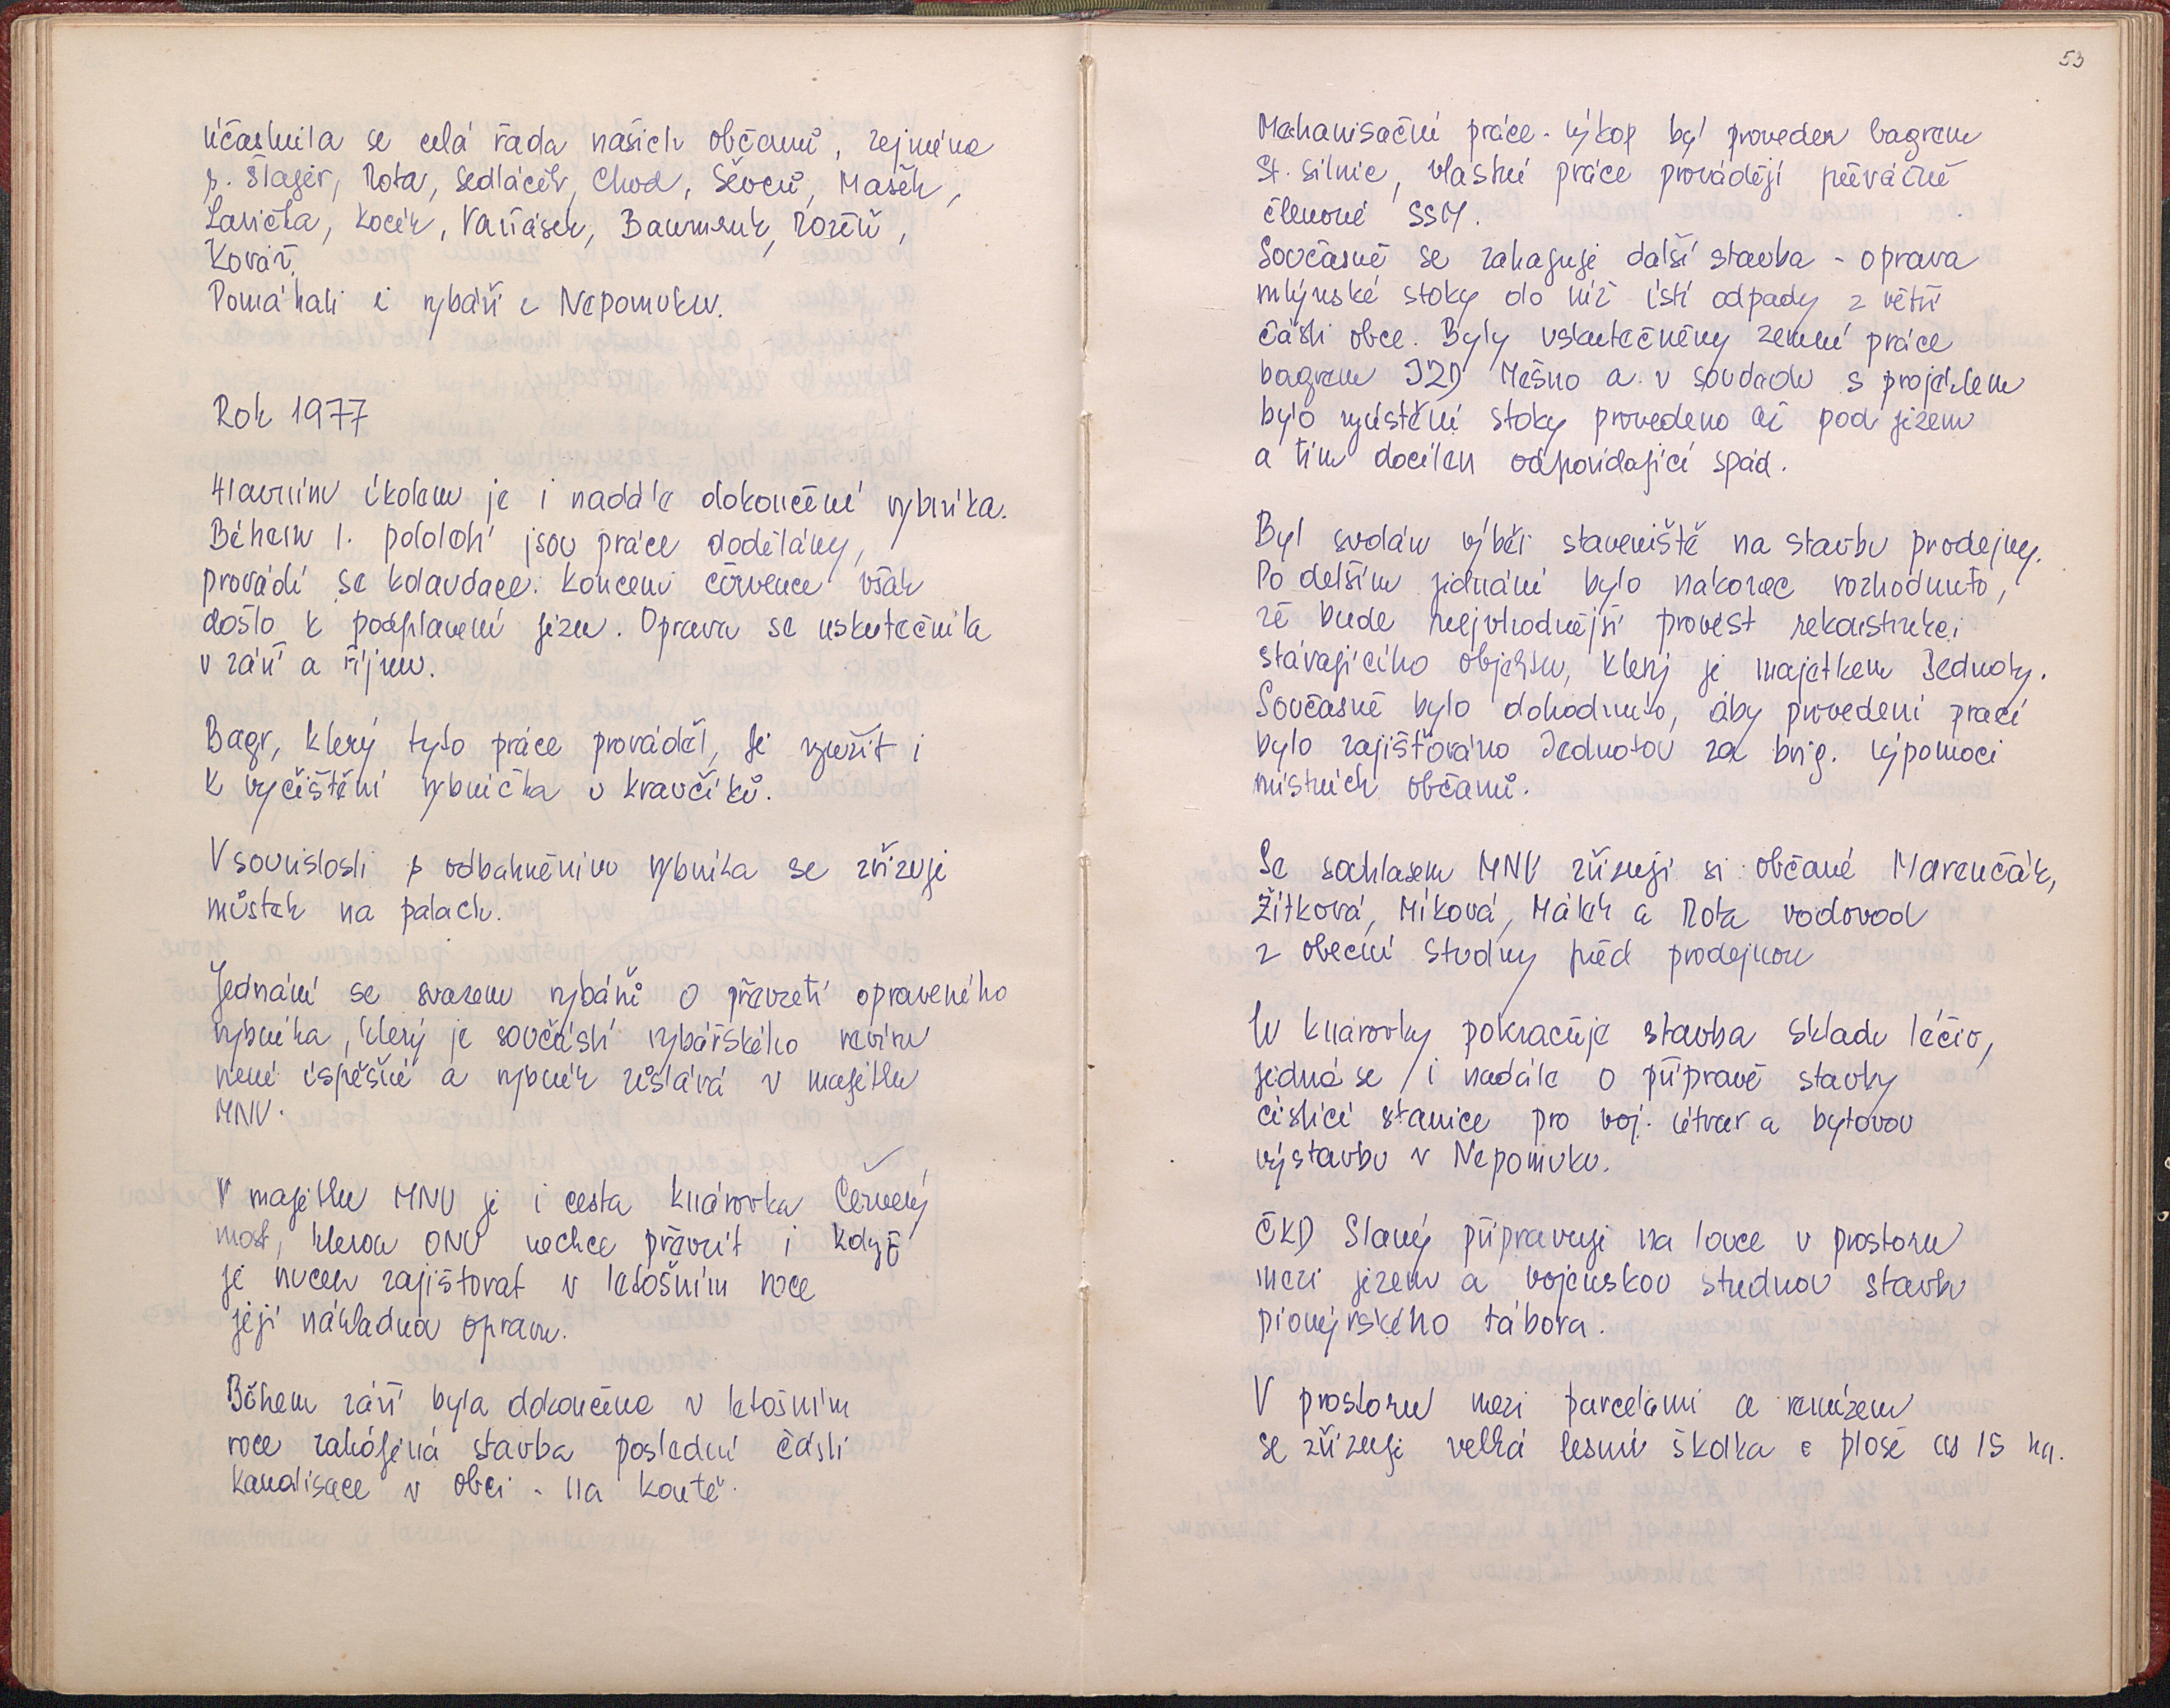 účastnila se celá řada našich občanů, zejména
p. Šlager, Rota, Sedláček, Chod, Ševců, Mašek,
Lavička, Kocek, Vaňásek, Baumruk, Rozen,
Kovář.
Pomáhali i rybáři z Nepomuku.
Rok 1977
Hlavním úkolem je i nadále dokončení rybníka.
Během 1. pololetí jsou práce dodělány,
provádí se kolaudace. Koncem července však
došlo k podplavení jezu. Oprava se uskutečnila
v září a říjnu.
Bagr, který tyto práce prováděl, je využit i
k vyčištění rybníčka u Kravčíků.
V souvislosti s odbahněním rybníka se zřizuje
můstek na palach.
Jednání se svazem rybářů o převzetí opraveného
rybníka, který je součástí rybářského revíru
není úspěšné a rybník zůstává v majetku
MNV.
V majetku MNV je i cesta Knárovka Červený
most, kterou ONV nechce převzít i když
je nucen zajišťovat v letošním roce
její nákladnou opravu.
Během září byla dokončena v letošním
roce zahájená stavba poslední části
kanalisace v obci - na koutě.
53
Mechanisační práce - výkop byl proveden bagrem
St. silnic, vlastní práce provádějí převážně
členové SSM.
Současně se zahajuje další stavba - oprava
mlýnské stoky do níž ústí odpady z větší
části obce. Byly uskutečněny zemní práce
bagrem JZD Mešno a v souladu s projektem
bylo vyústění stoky provedeno až pod jezem
a tím docílen odpovídající spád.
Byl svolán výběr staveniště na stavbu prodejny.
Po delším jednání bylo nakonec rozhodnuto,
že bude nejvhodnější provést rekonstrukci
stávajícího objektu, který je majetkem Jednoty.
Současně bylo dohodnuto, aby provedení prací
bylo zajišťováno Jednotou za brig. výpomoci
místních občanů.
Se souhlasem MNV zřizují si občané Marenčák,
Žítková, Míková, Málek a Rota vodovod
z obecní studny před prodejnou
U Knárovky pokračuje stavba skladu léčiv,
jedná se i nadále o přípravě stavby
čistící stanice pro voj. útvar a bytovou
výstavbu v Nepomuku.
ČKD Slaný připravuje na louce v prostoru
mezi jezem a vojenskou studnou stavbu
pionýrského tábora.
V prostoru mezi parcelami a remízem
se zřizuje velká lesní školka o ploše as 15 ha.